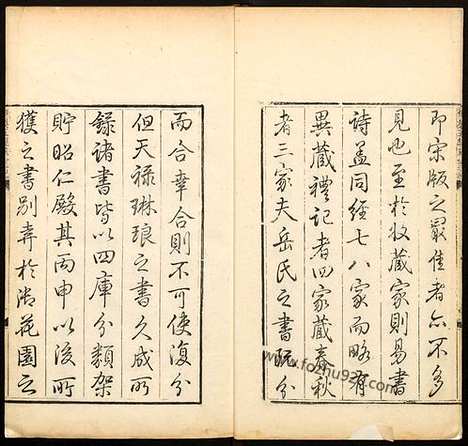 即宋版之最佳者亦不多
見也至於收藏家則易書
詩蓋同經七八家而略有
異藏禮記者四家藏春秋
者三家夫岳氏之書既分
而合幸合則不可使復分
但天祿琳琅之書久成所
錄諸書皆以四庫分類架
貯昭仁殿其丙申以後所
獲之書別弆於御花園之
www.fozhu920.com